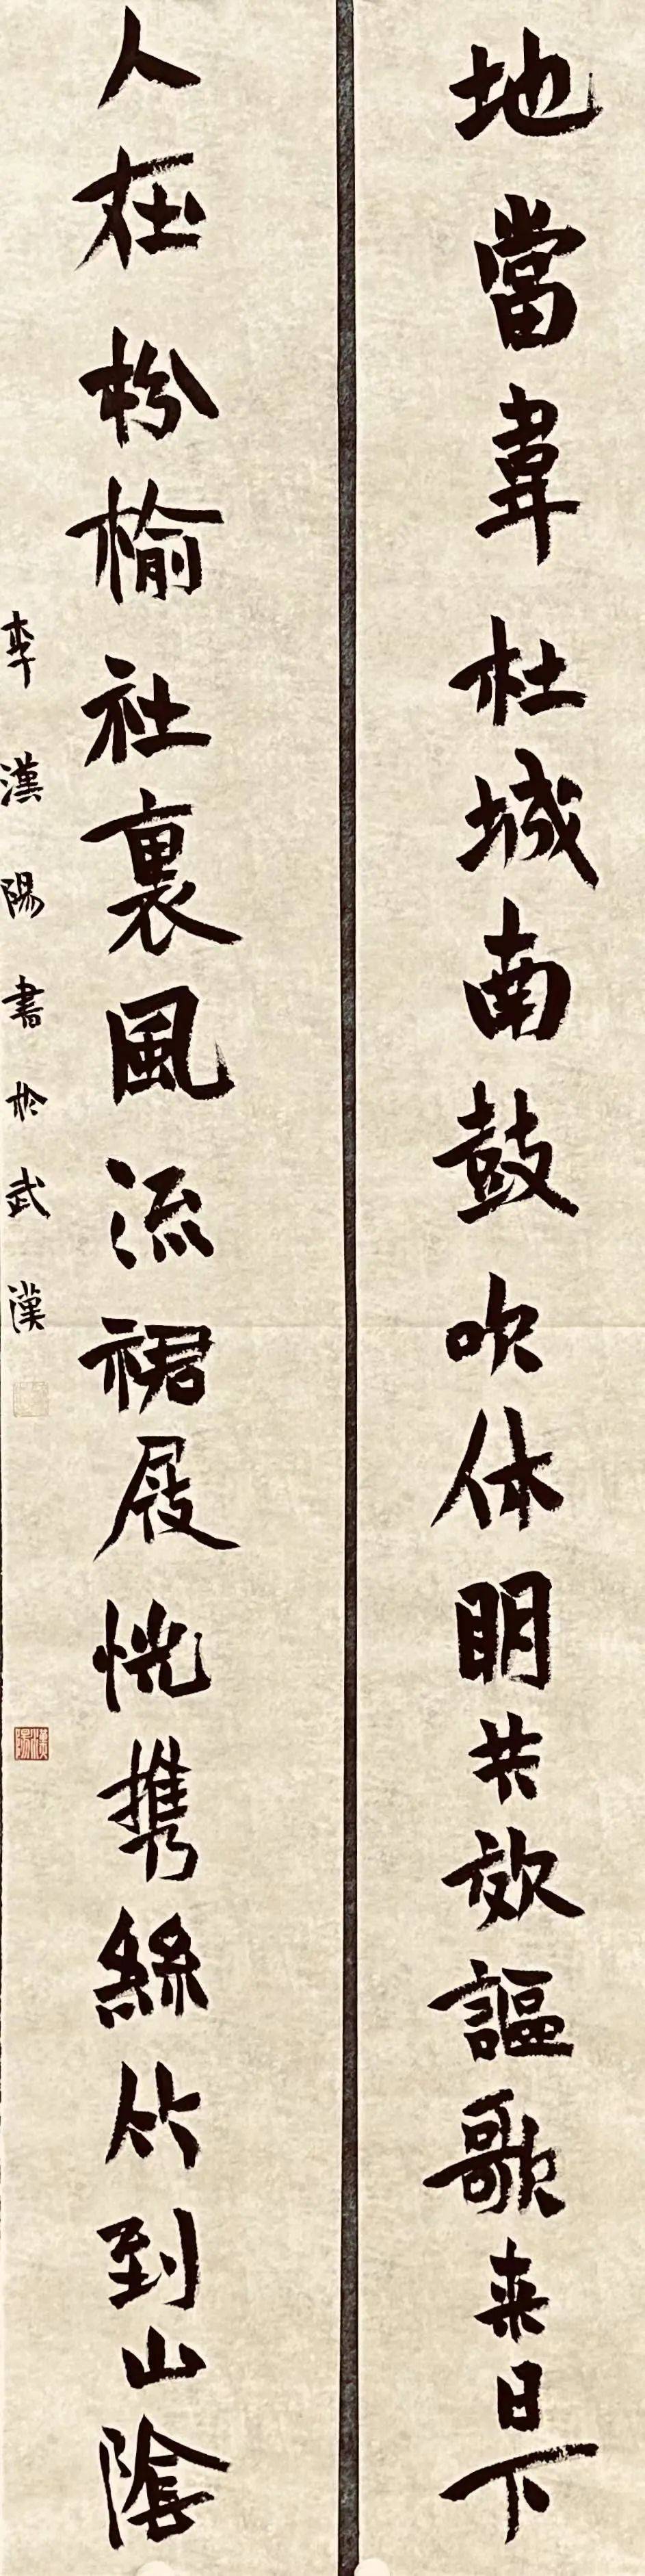 地當韋杜城南鼓吹休明共效謳歌来日下
人在枌榆社裏風流裙屐恍携絲竹到山陰
李漢陽書於武漢
漢陽